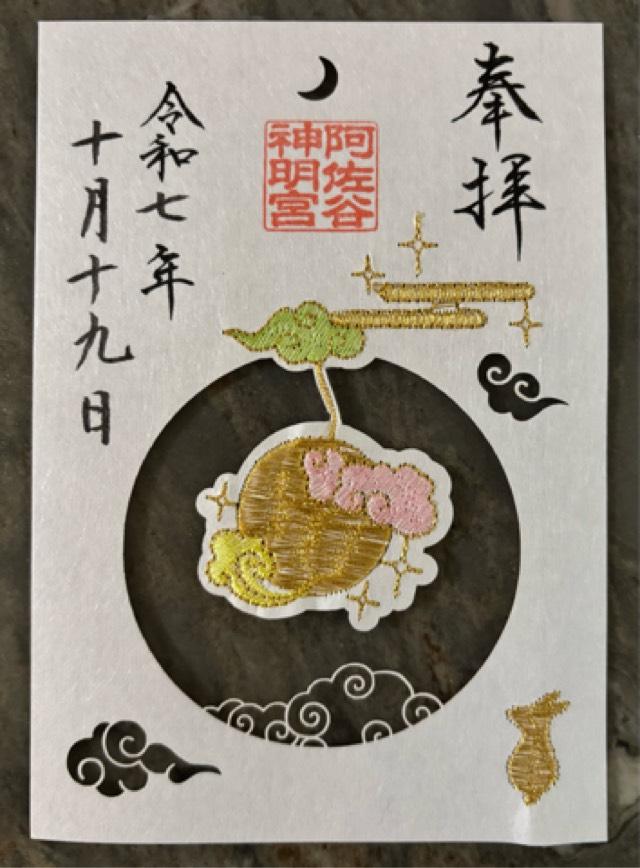 奉拝
阿佐谷
神明宮
令和七年
十月十九日